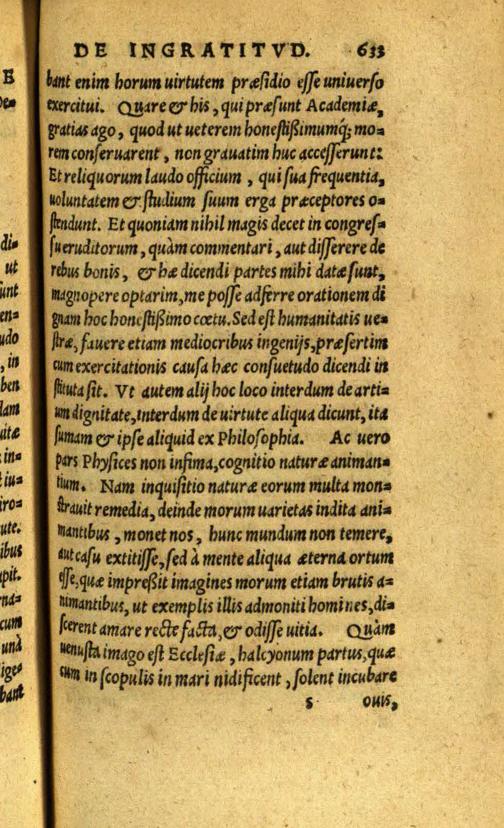 DE INGRATITVD. 633
bant enim horum uirtutem præsidio esse uniuerso
exercitui. Quare & his, qui præsunt Academiæ,
gratias ago, quod ut ueterem honestißimumq́; mo=
rem conseruarent, non grauatim huc accesserunt:
Et reliquorum laudo officium, qui sua frequentia,
uoluntatem & studium suum erga præceptores o=
stendunt. Et quoniam nihil magis decet in congres=
su eruditorum, quàm commentari, aut disserere de
rebus bonis, & hæ dicendi partes mihi datæ sunt,
magnopere optarim, me posse adferre orationem di
gnam hoc honestißimo cœtu. Sed est humanitatis ue=
stræ, fauere etiam mediocribus ingenijs, præsertim
cum exercitationis causa hæc consuetudo dicendi in
stituta sit. Vt autem alij hoc loco interdum de arti=
um dignitate, interdum de uirtute aliqua dicunt, ita
sumam & ipse aliquid ex Philosophia. Ac uero
pars Physices non infima, cognitio naturæ animan=
tium. Nam inquisitio naturæ eorum multa mon=
strauit remedia, deinde morum uarietas indita ani=
mantibus, monet nos, hunc mundum non temere,
aut casu extitisse, sed à mente aliqua æterna ortum
esse, quæ impreßit imagines morum etiam brutis a=
nimantibus, ut exemplis illis admoniti homines, di=
scerent amare recte facta, & odisse uitia. Quàm
uenusta imago est Ecclesiæ, halcyonum partus, quæ
cum in scopulis in mari nidificent, solent incubare
s ouis,